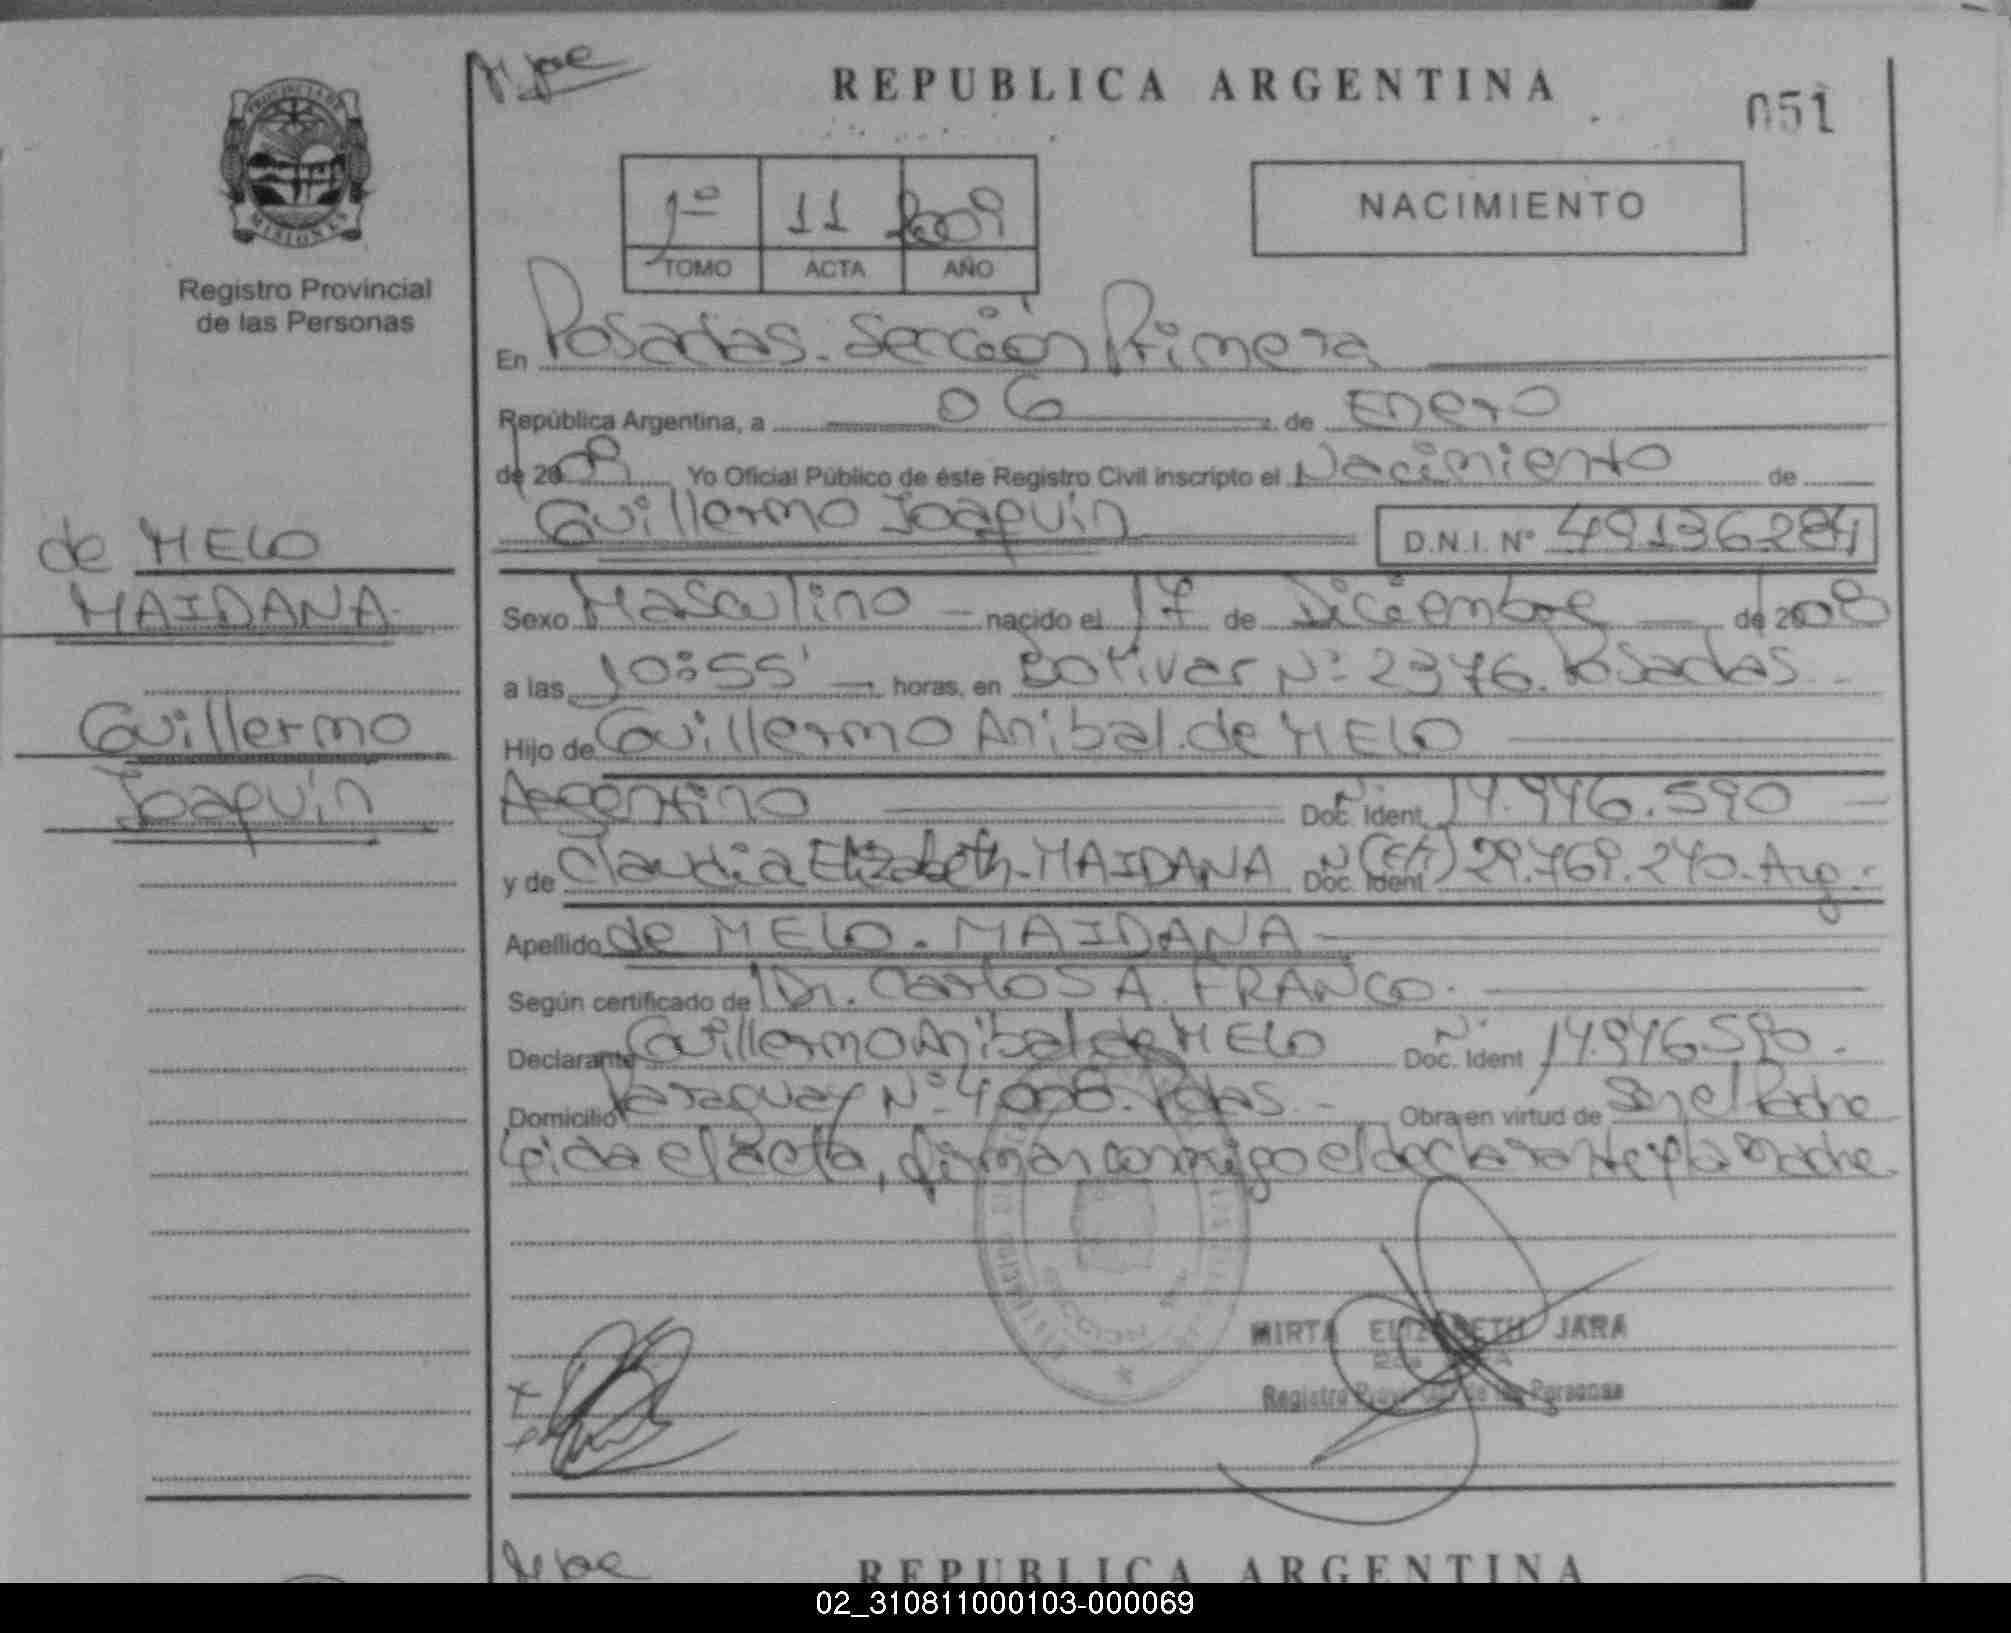 REPUBLICA ARGENTINA
051
PROVINCIA DE
MISIONES
Registro Provincial
de las Personas
1º 11 2009
TOMO ACTA AÑO
NACIMIENTO
En Posadas. Sección Primera
República Argentina, a 06 de Enero
de 2009 Yo Oficial Público de éste Registro Civil inscripto el Nacimiento de
Guillermo Joaquín D.N.I. Nº 49136284
de MELO
MAIDANA
Guillermo
Joaquín
Sexo Masculino nacido el 17 de Diciembre de 2008
a las 10:55' horas, en Bolivar Nº 2376. Posadas
Hijo de Guillermo Anibal. de MELO
Argentino Doc. Ident. Nº 14.946.590
y de Claudia Elizabeth. MAIDANA Doc. Ident Nº 29.769.240. Arg.
Apellido de MELO. MAIDANA
Según certificado de Dr. Carlos A. FRANCO.
Declarante Guillermo Anibal de MELO Doc. Ident Nº 14.946.590.
Domicilio Paraguay Nº 4008. Pdas. Obra en virtud de Ser el Padre
Leida el acta, firman conmigo el declarante y la Madre
MIRTA ELIZABETH JARA
Registro Prov. de las Personas
REPUBLICA ARGENTINA
02_310811000103-000069